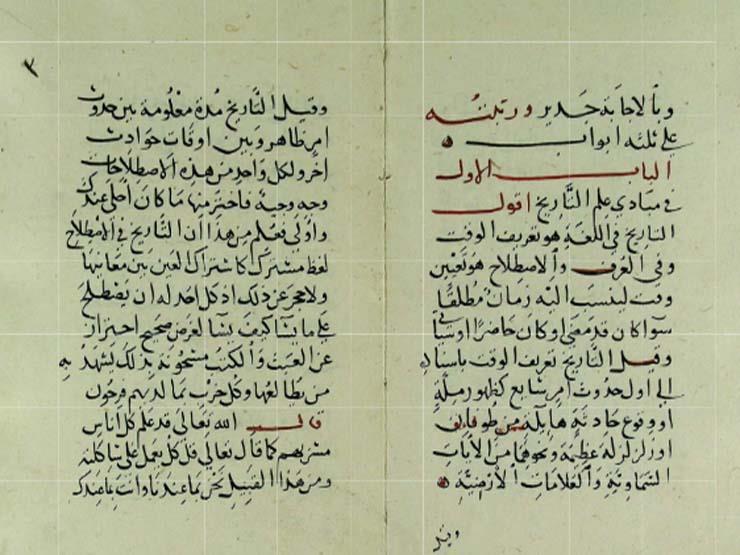 وبالاجابة جدير ورتبته
على ثلثه ابواب
الباب الاول
في مبادي علم التاريخ اقول
التاريخ في اللغة هو تعريف الوقت
وفي العرف والاصطلاح هو تعيين
وقت لينسب اليه زمان مطلقا
سوا كان قد مضى او كان حاضرا او سياتي
وقيل التاريخ تعريف الوقت باسناده
الى اول حدوث امر شايع كظهور ملة
او وقوع حادثة هايلة من طوفان
او زلزلة عظيمة ونحوهما من الايات
السماوية والعلامات الارضية
وقيل
٣
وقيل التاريخ مدة معلومة بين حدوث
امر ظاهر وبين اوقات حوادث
اخر ولكل واحد من هذه الاصطلاحات
وجه وجيه فاختر منها ما كان احلى عندك
واولى فعلم من هذا ان التاريخ في الاصطلاح
لفظ مشترك كاشتراك العين بين معانيها
ولا حجر عن ذلك اذ كل احد له ان يصطلح
على ما يشا كيف يشا لغرض صحيح احتراز
عن العبث والكتب مشحونة بذلك يشهد به
من يطالعها وكل حزب بما لديهم فرحون
قال الله تعالى قد علم كل اناس
مشربهم كما قال تعالى قل كل يعمل على شاكلته
ومن هذا القبيل نحن بما عندنا وانت بما عندك